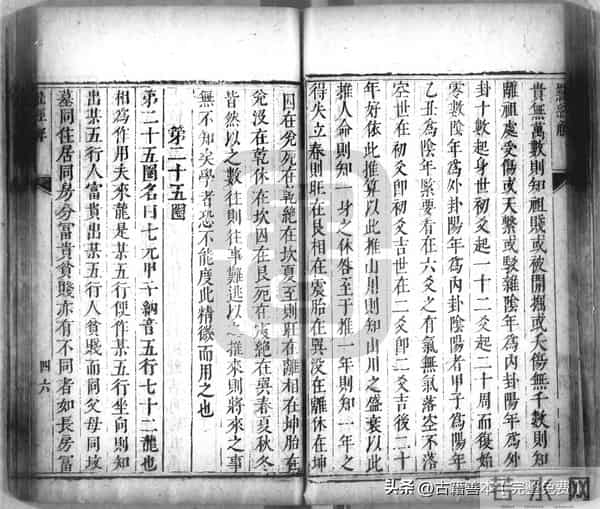 貴無萬數則知祖賤或被開掘或大傷無千數則知
離祖處受傷或大繁或駁雜陰年為內卦陽年為外
卦十數起身世初爻起一十二爻起二十周而復始
零數陰年為外卦陽年為內卦陰陽者甲子為陽年
乙丑為陰年緊要看在六爻之有氣無氣落空不落
空世在初爻即初爻吉世在二爻即二爻吉後二十
年好依此推算以此推山川則知山川之盛衰以此
推人命則知一身之休咎至于推一年則知一年之
得失立春則旺在艮相在震胎在巽沒在離休在坤
囚在兌死在乾絕在坎夏至則旺在離相在坤胎在
兌沒在乾休在坎囚在艮死在震絕在巽春夏秋冬
皆然以之數往則往事難逃以之推來則將來之事
無不知矣學者恐不能度此精微而用之也
第二十五圖
第二十五圖名曰七元甲子納音五行七十二龍也
相為作用夫來龍是某五行便作某五行坐向則知
出某五行人富貴出某五行人貧賤而同父母同坟
墓同住居同房分富貴貧賤亦有不同者如長房富
四六
頭条 @古籍善本十完整免費